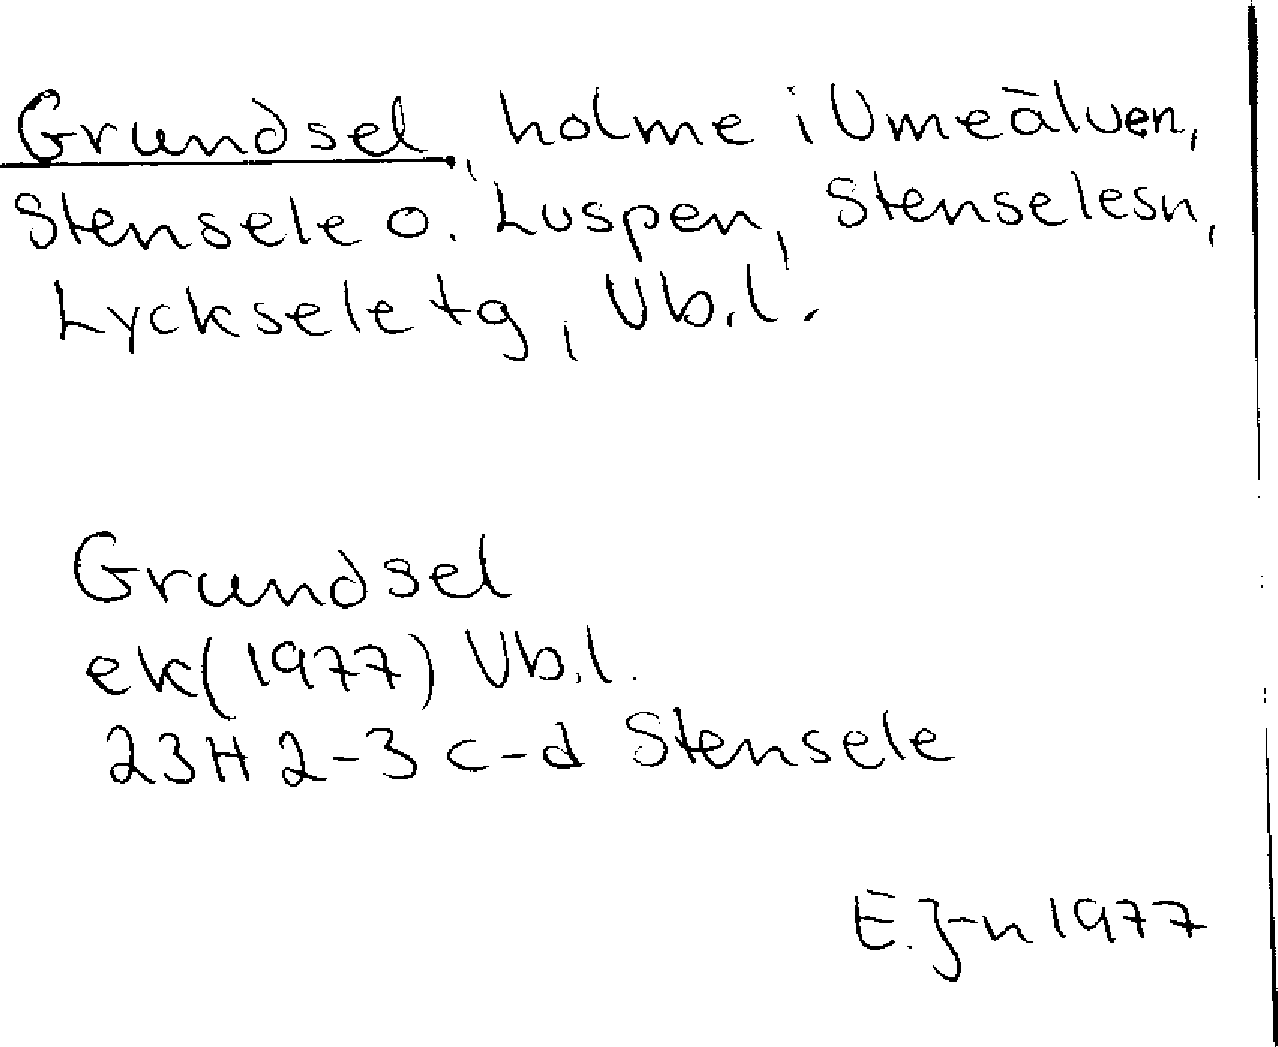 Grundsel, holme i Umeälven,
Stensele o. Luspen, Stenselesn,
Lycksele tg, Vb.l.
Grundsel
ek(1977) Vb.l.
23H 2-3 c-d Stensele
E.J-n 1977